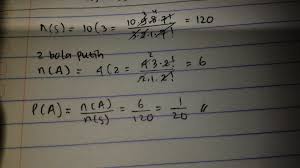 n(s) = 10C3 = 10.9.8.7! / 3.2.1.7! = 120
2 bola putih
n(A) = 4C2 = 4.3.2! / 2.1.2! = 6
P(A) = n(A) / n(s) = 6 / 120 = 1 / 20 //